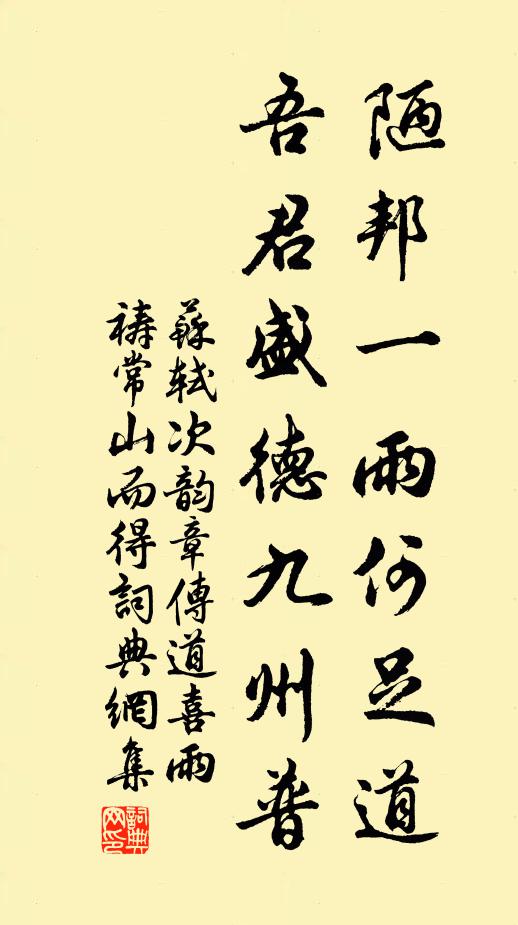 陋邦一雨何足道
吾君盛德九州普
蘇軾次韵章傳道喜雨
禱常山而得詞典網集
詞典
网印